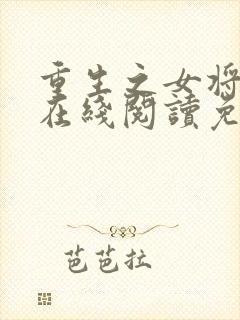 重生之女将
在綫閱讀免
芭芭拉